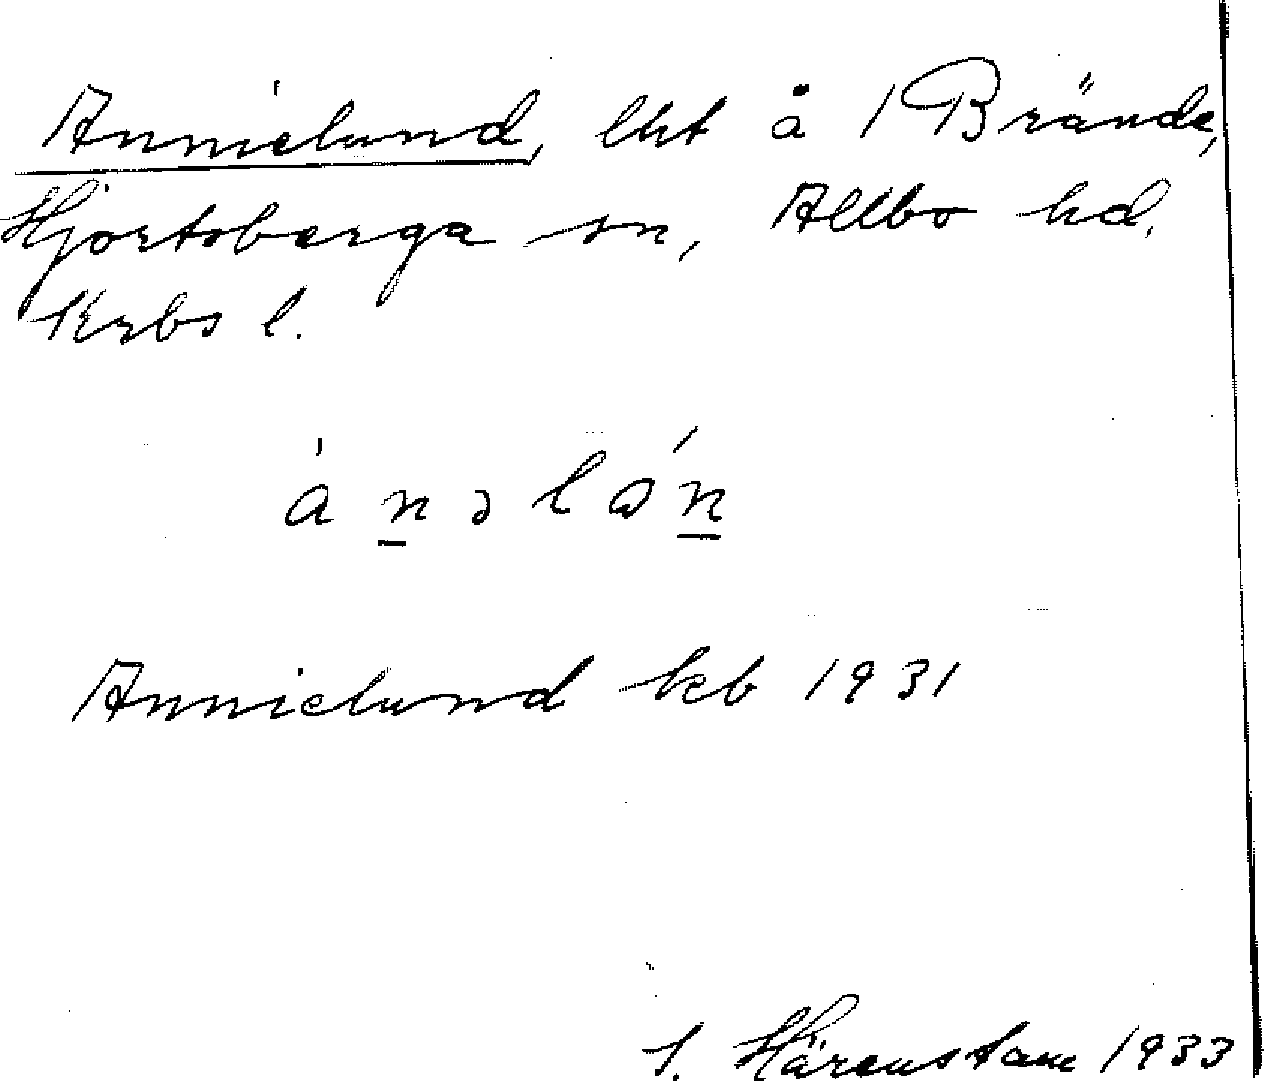 Annielund, lht å 1 Brände,
Hjortsberga sn, Allbo hd,
Krbs l.
ánəlán
Annielund kb 1931
S. Härenstam 1933